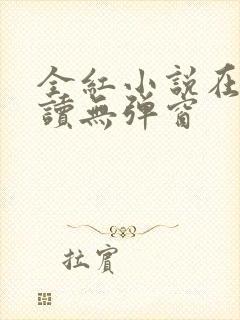 全紅小說在
讀無彈窗
拉賓